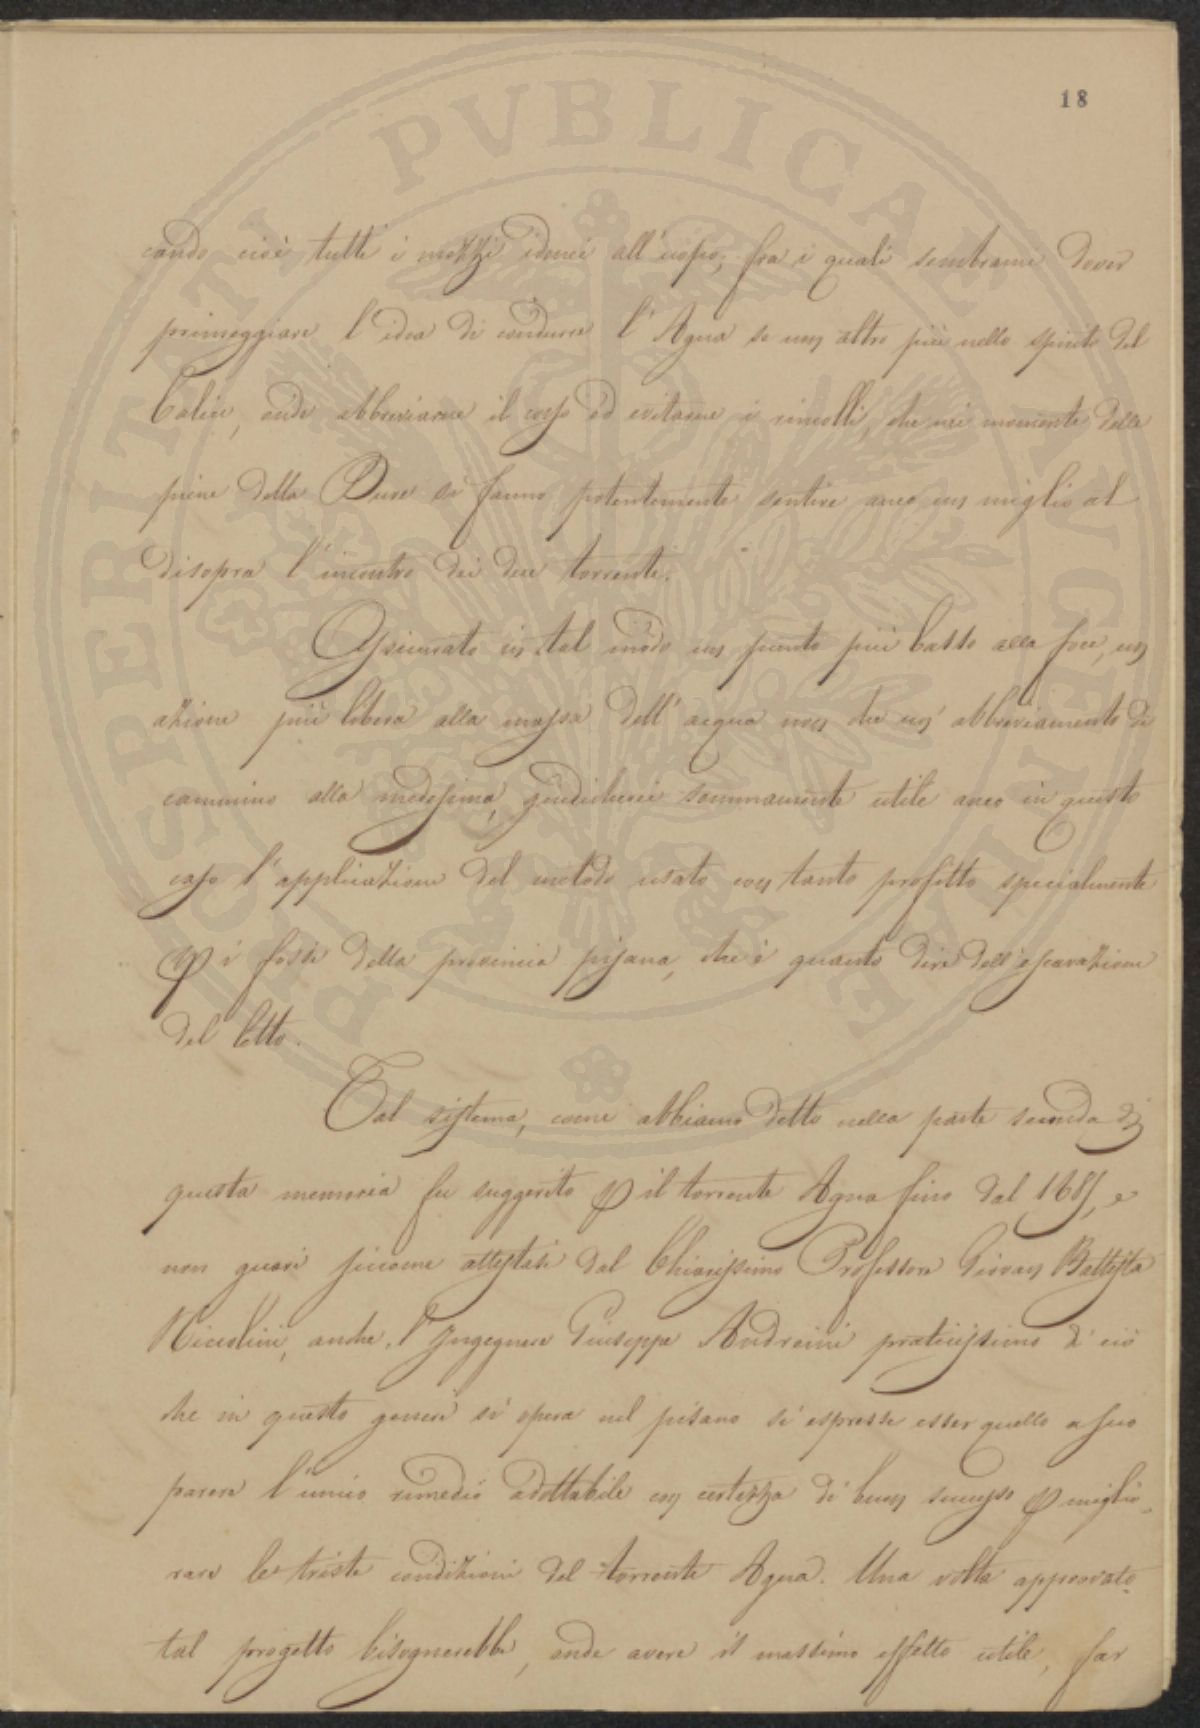 18
cando cioè tutti i mezzi idonei all'uopo; fra i quali sembrami dover
primeggiare l'idea di condurre l'Agna se non altro più nello spirito del
Calice, onde abbreviarne il corso ed evitarne i rincolli, che nei momenti delle
piene della Bure si fanno potentemente sentire anco un miglio al
disopra l'incontro dei due torrenti.
Assicurato in tal modo un punto più basso alla foce, un
azione più libera alla massa dell'acqua non che un'abbreviamento di
cammino alla medesima, giudicherei sommamente utile anco in questo
caso l'applicazione del metodo usato con tanto profitto specialmente
p i fossi della provincia pisana, che è quanto dire dell'escavazione
del letto.
Tal sistema, come abbiamo detto nella parte seconda di
questa memoria fu suggerito p il torrente Agna fino dal 168, e
non guari siccome attestasi dal Chiarissimo Professore Giovan Battista
Niccolini, anche l'Ingegnere Giuseppe Andreini praticissimo di ciò
che in questo genere si opera nel pisano si espresse esser quello a suo
parere l'unico rimedio adottabile con certezza di buon successo p miglio-
rare le triste condizioni del torrente Agna. Una volta approvato
tal progetto bisognerebbe, onde avere il massimo effetto utile, far
PROSPERITATI PVBLICAE AVGENDAE